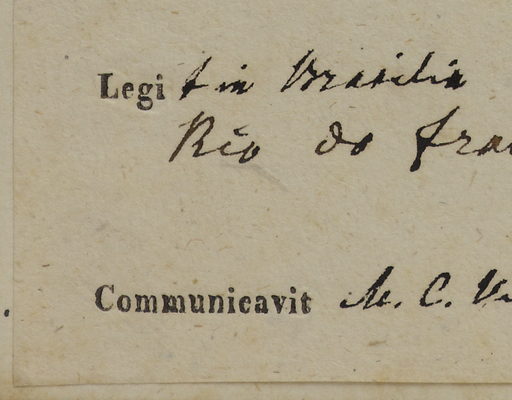 Legit in Brasilia
Rio do
Communicavit M. C.